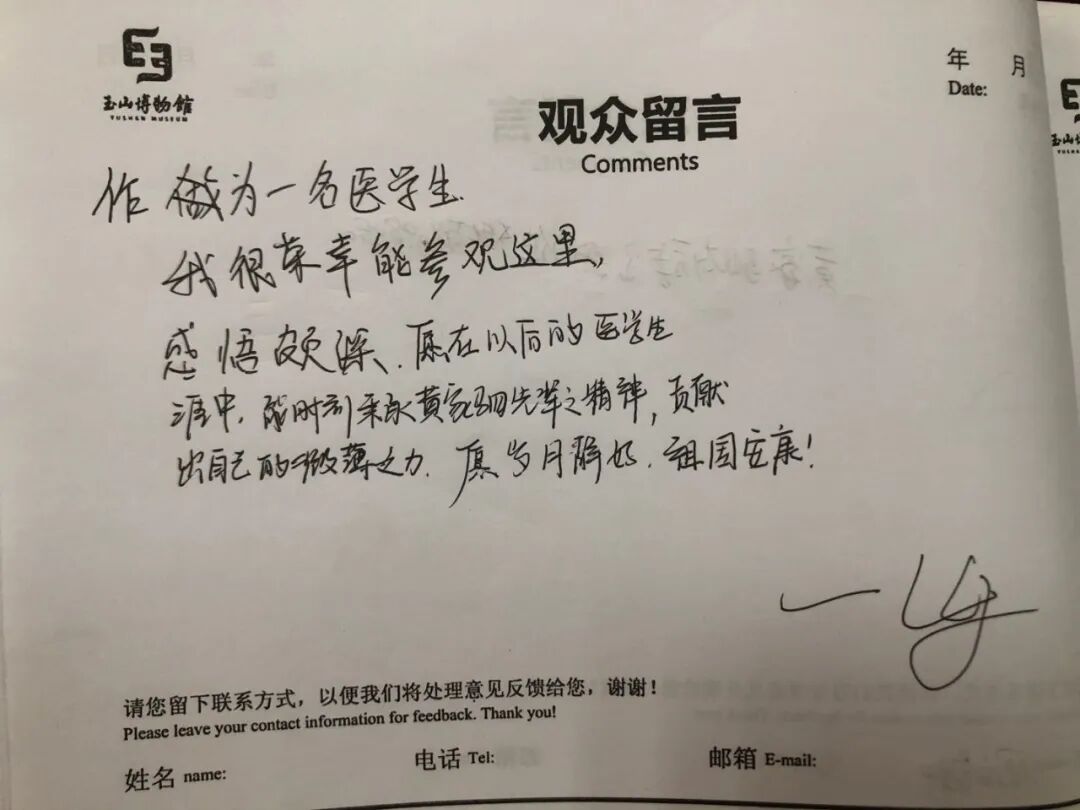 玉山博物馆
YUSHAN MUSEUM
年 月
Date:
观众留言
Comments
作为一名医学生.
我很荣幸能参观这里,
感悟颇深、愿在以后的医学生
涯中,能时刻秉承黄家驷先辈之精神,贡献
出自己的微薄之力.愿岁月静好.祖国安康!
一
请您留下联系方式,以便我们将处理意见反馈给您,谢谢!
Please leave your contact information for feedback. Thank you!
姓名 name: 电话 Tel: 邮箱 E-mail: